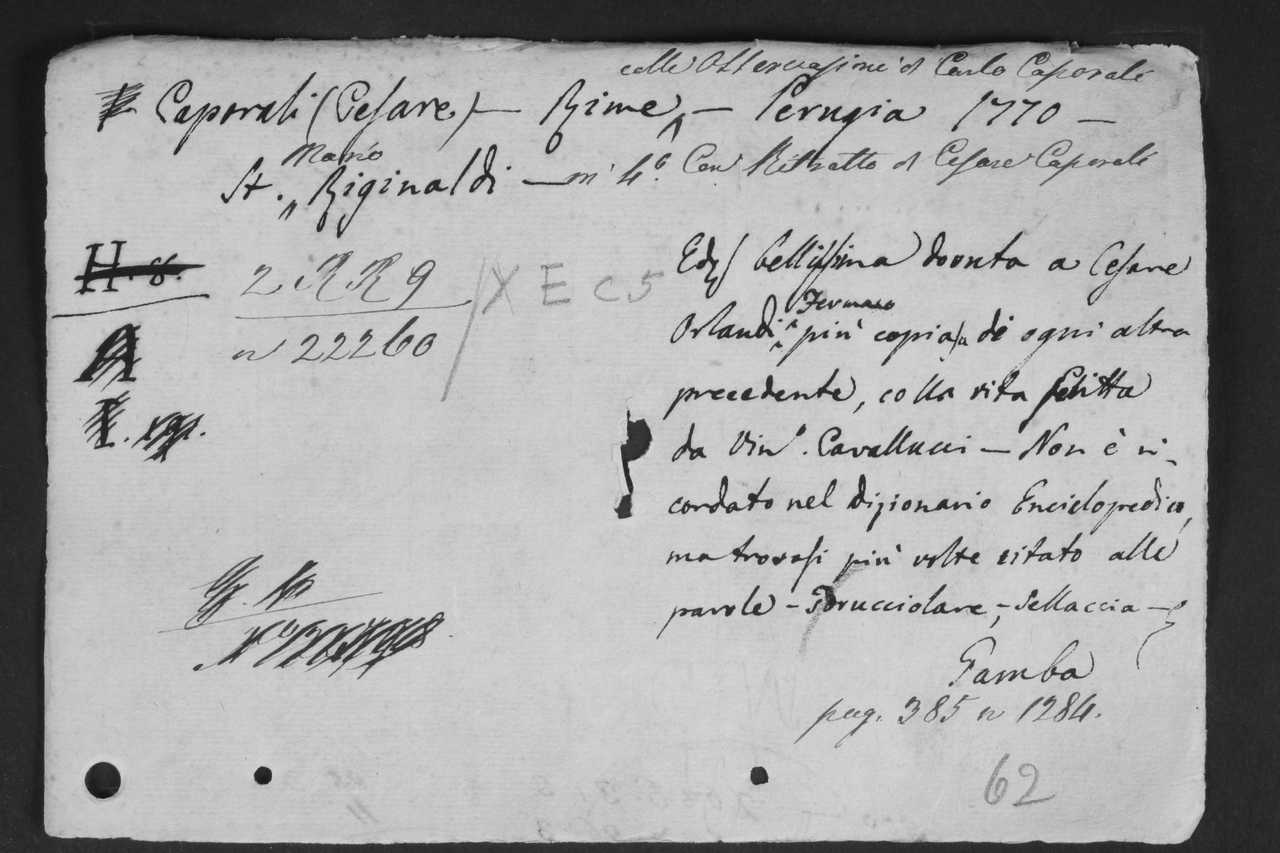 colle Osservazioni di Carlo Caporali
Caporali (Cesare) — Rime, — Perugia 1770 —
Mario
St. Riginaldi — in 4.º Con Ritratto di Cesare Caporali
H. 8.
2 RR 9 / X E C 5
n 22260
A
I.
Ediz. bellissima dovuta a Cesare
Fermano
Orlandi più copiosa di ogni altra
precedente, colla vita scritta
da Vinc. Cavallucci — Non è ri-
cordato nel dizionario Enciclopedico,
ma trovasi più volte citato alle
parole — Sdrucciolare, — Sellaccia —
Gamba
pag. 385 n 1284.
62